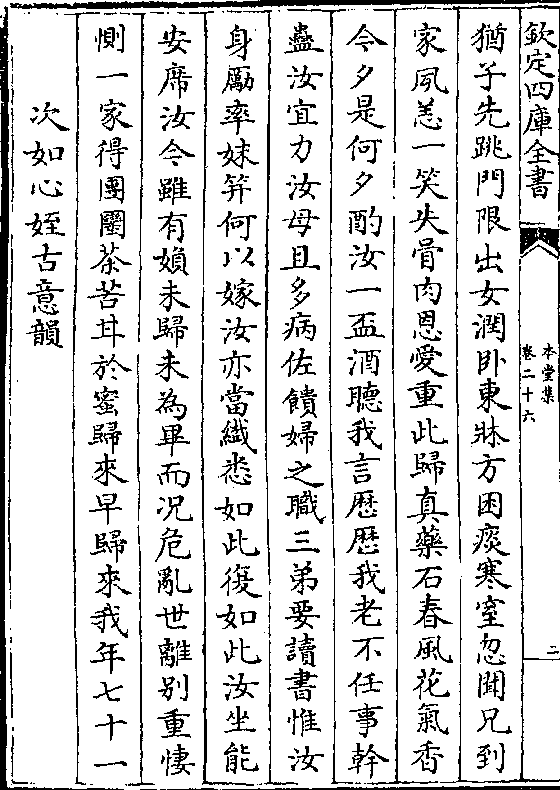 欽定四庫全書
本堂集
卷二十六
二
猶子先跳門限出女潤卧東牀方困痰寒窒忽聞兄到
家夙恙一笑失骨肉恩愛重此歸真藥石春風花氣香
今夕是何夕酌汝一盃酒聽我言歴歴我老不任事幹
蠱汝宜力汝母且多病佐饋婦之職三弟要讀書惟汝
身勵率妹笄何以嫁汝亦當纎悉如此復如此汝坐能
安席汝今雖有媍未歸未為畢而况危亂世離别重悽
惻一家得團圞荼苦甘於蜜歸來早歸來我年七十一
次如心姪古意韻